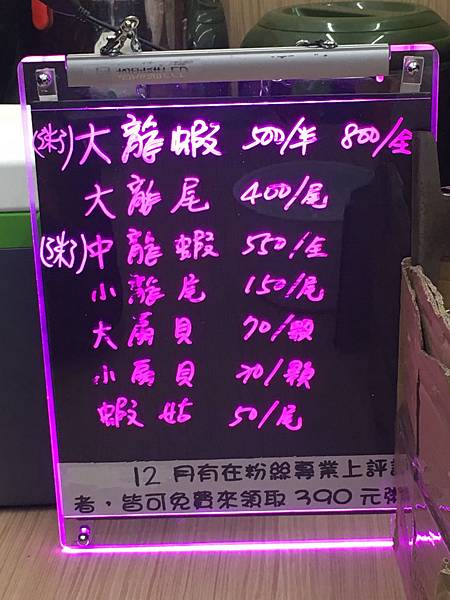 (粥)大龍蝦 500/半 800/全
大龍尾 400/尾
(粥)中龍蝦 550/全
小龍尾 150/尾
大扇貝 70/顆
小扇貝 30/顆
蝦姑 50/尾
12 月有在粉絲專業上評
者，皆可免費來領取 390 元